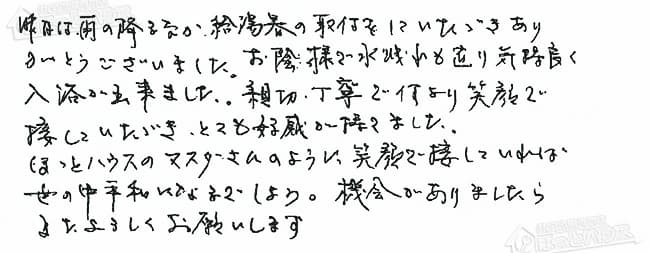 昨日は雨の降る中、給湯器の取付をしていただきあり
がとうございました。お陰様で水漏れも直り気持良く
入浴が出来ました。親切、丁寧で何より笑顔で
接していただき、とても好感が持てました。
ほっとハウスのマスダさんのように、笑顔で接していれば
世の中平和になるでしょう。機会がありましたら
またよろしくお願いします